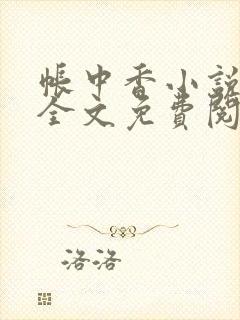 帳中香小説
全文免費閱
洛洛